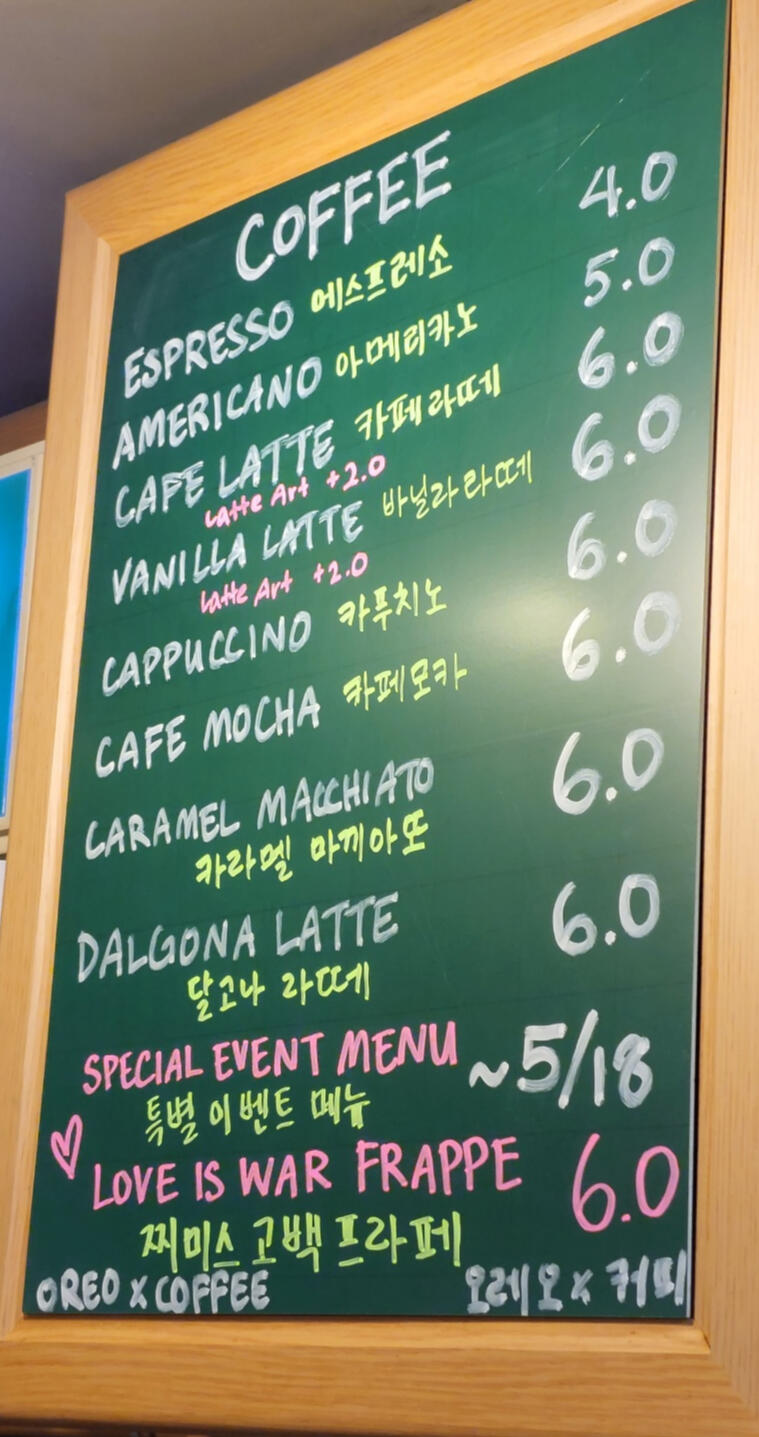 COFFEE
ESPRESSO 에스프레소 4.0
AMERICANO 아메리카노 5.0
CAFE LATTE 카페라떼 6.0
Latte Art +2.0
VANILLA LATTE 바닐라라떼 6.0
Latte Art +2.0
CAPPUCCINO 카푸치노 6.0
CAFE MOCHA 카페모카 6.0
CARAMEL MACCHIATO 6.0
카라멜 마끼아또
DALGONA LATTE 6.0
달고나 라떼
SPECIAL EVENT MENU ~5/18
특별 이벤트 메뉴
LOVE IS WAR FRAPPE 6.0
찌미스 고백 프라페
OREO X COFFEE 오레오 x 커피